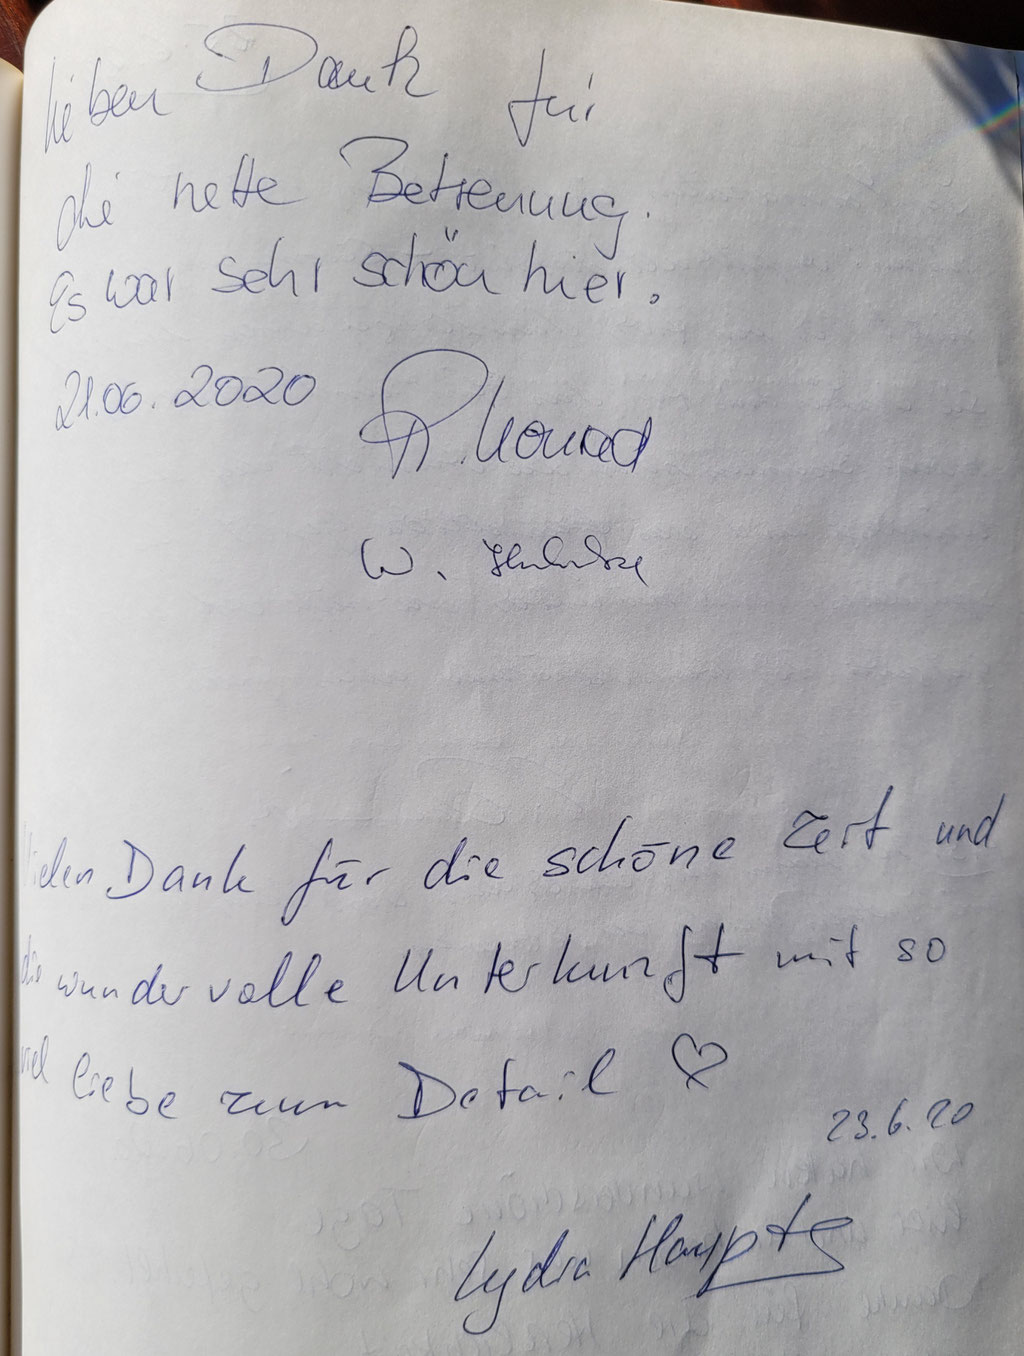 lieben Dank für
die nette Betreuung.
Es war sehr schön hier.
21.06.2020 R. Konrad
W.
Vielen Dank für die schöne Zeit und
die wundervolle Unterkunft mit so
viel liebe zum Detail ♡
23.6.20
Lydia